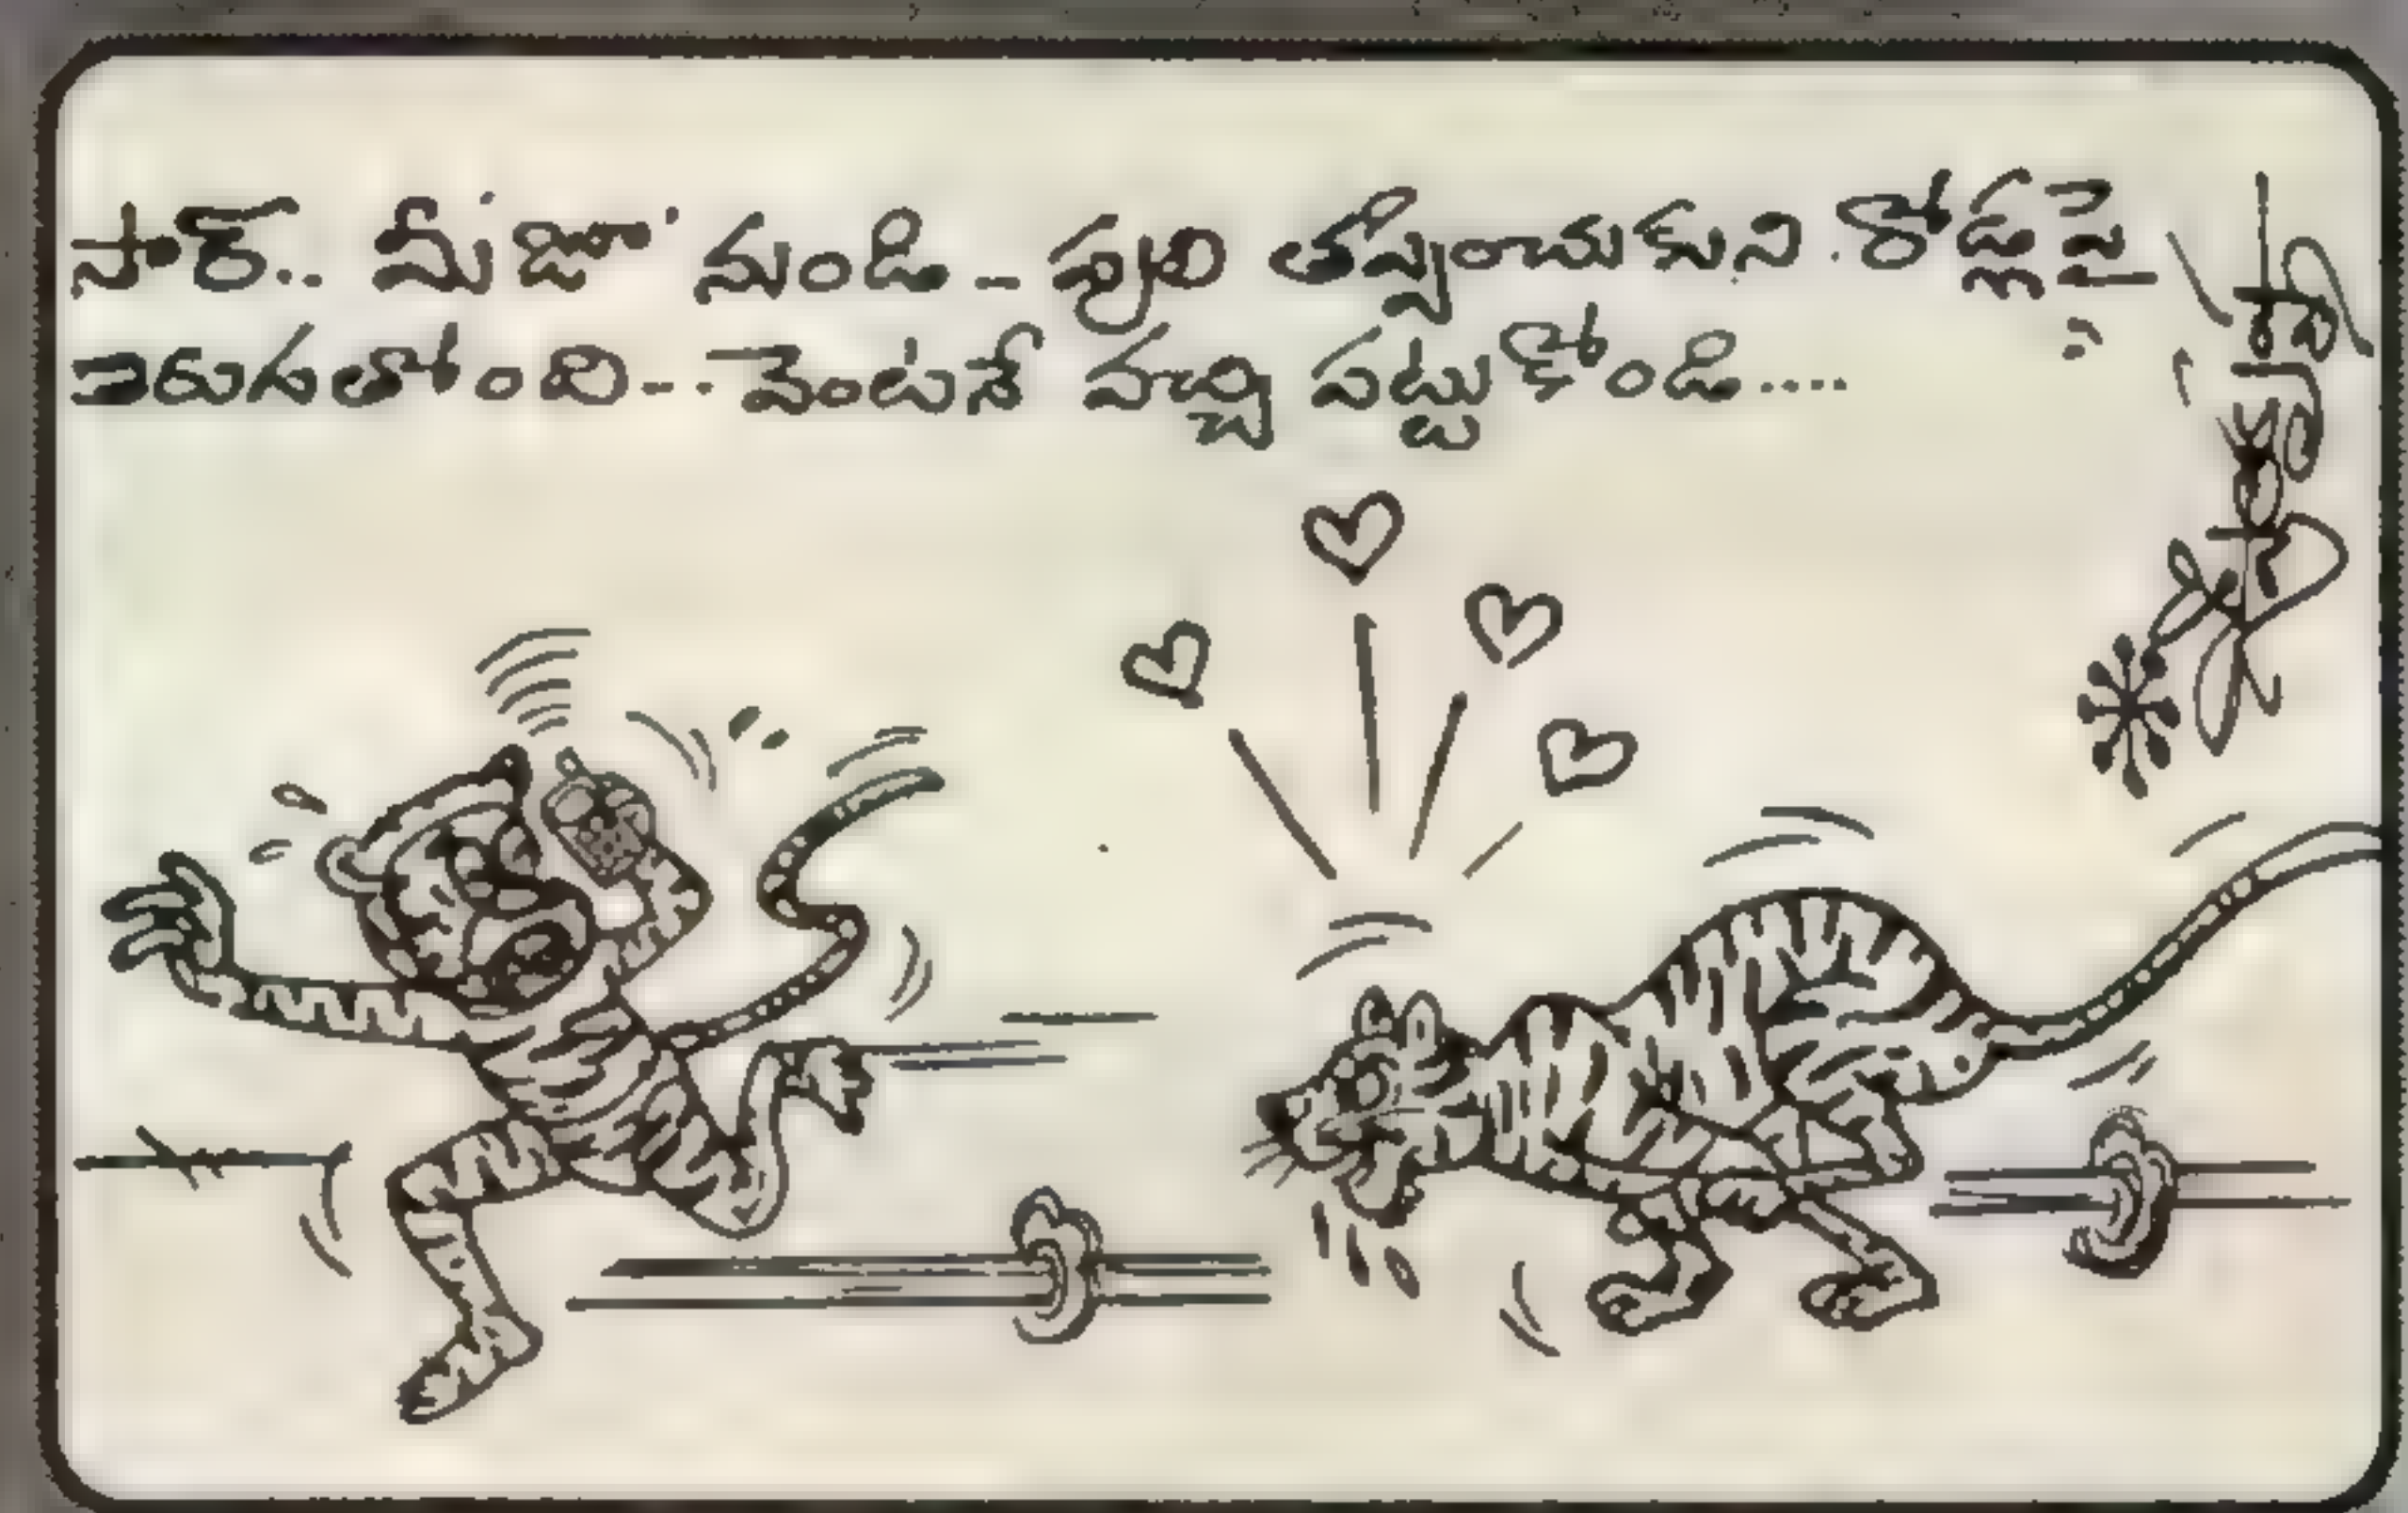 సార్.. మీ 'జూ' నుండి -- పులి తప్పించుకుని రోడ్లపై
తిరుగుతోంది--- వెంటనే వచ్చి పట్టుకోండి....